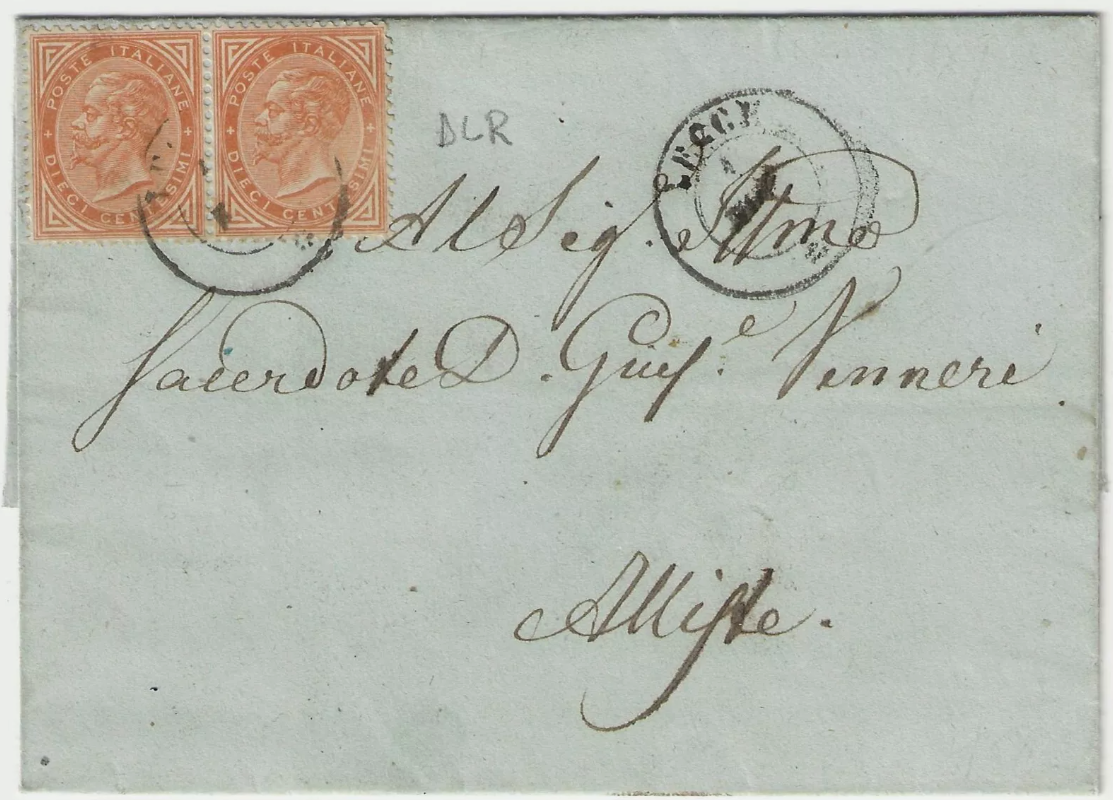 POSTE ITALIANE
DIECI CENTESIMI
POSTE ITALIANE
DIECI CENTESIMI
DLR
LECCE
Al Sig. Ill̃mo
Sacerdote D. Giuſ.e Venneri
Alliste.